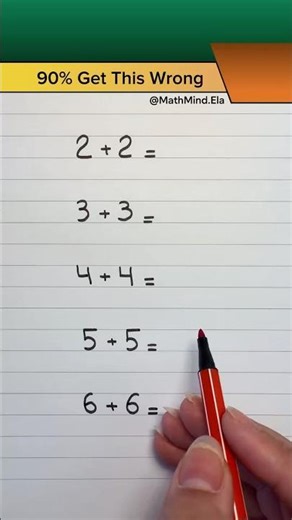 90% Get This Wrong
@MathMind.Ela
2 + 2 =
3 + 3 =
4 + 4 =
5 + 5 =
6 + 6 =